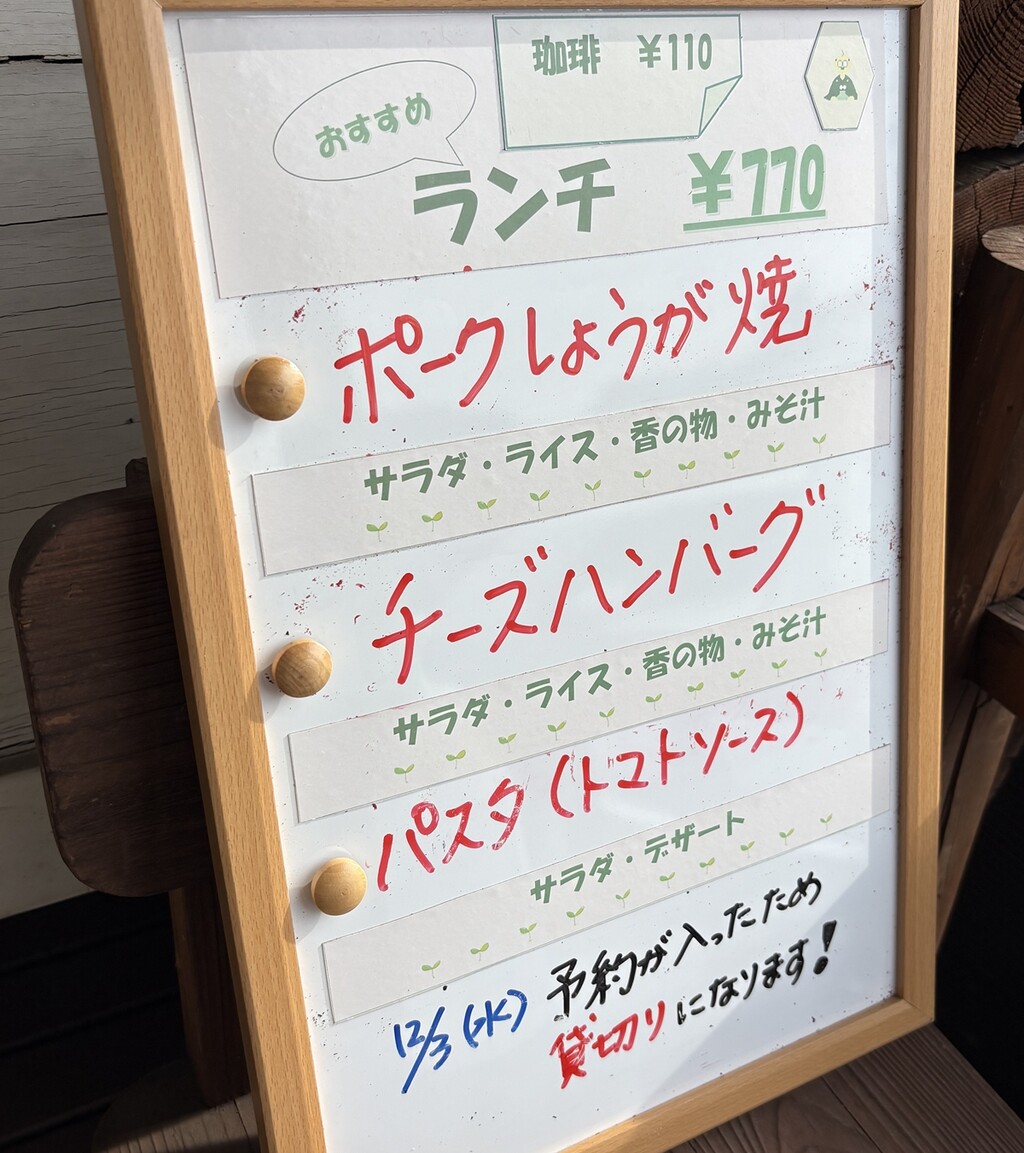 珈琲 ￥110
おすすめ
ランチ ￥770
ポークしょうが焼
サラダ・ライス・香の物・みそ汁
チーズハンバーグ
サラダ・ライス・香の物・みそ汁
パスタ(トマトソース)
サラダ・デザート
12/3(水) 予約が入ったため
貸切りになります!